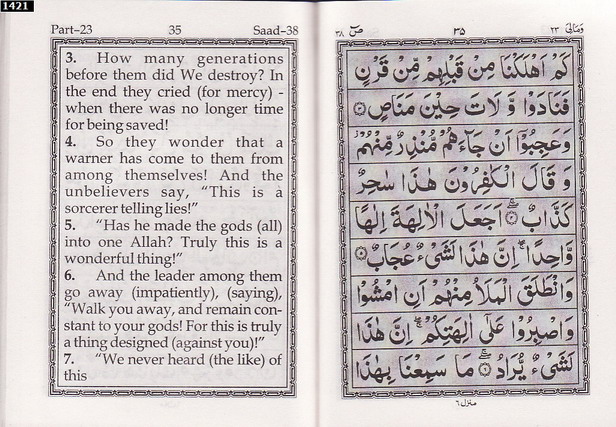 1421
Part–23 35 Saad–38
3. How many generations
before them did We destroy? In
the end they cried (for mercy) -
when there was no longer time
for being saved!
4. So they wonder that a
warner has come to them from
among themselves! And the
unbelievers say, “This is a
sorcerer telling lies!”
5. “Has he made the gods (all)
into one Allah? Truly this is a
wonderful thing!”
6. And the leader among them
go away (impatiently), (saying),
“Walk you away, and remain con-
stant to your gods! For this is truly
a thing designed (against you)!”
7. “We never heard (the like) of
this
وَمَالِىَ ٢٣ ٣٥ صٓ ٣٨
كَمْ اَهْلَكْنَا مِنْ قَبْلِهِمْ مِّنْ قَرْنٍ
فَنَادَوْا وَّلَاتَ حِيْنَ مَنَاصٍ ۝٣
وَعَجِبُوْۤا اَنْ جَآءَهُمْ مُّنْذِرٌ مِّنْهُمْ ؗ
وَقَالَ الْكٰفِرُوْنَ هٰذَا سٰحِرٌ
كَذَّابٌ ۝٤ اَجَعَلَ الْاٰلِهَةَ اِلٰهًا
وَّاحِدًا ۖ اِنَّ هٰذَا لَشَىْءٌ عُجَابٌ ۝٥
وَانْطَلَقَ الْمَلَاُ مِنْهُمْ اَنِ امْشُوْا
وَاصْبِرُوْا عَلٰٓى اٰلِهَتِكُمْ ۖ اِنَّ هٰذَا
لَشَىْءٌ يُّرَادُ ۝٦ مَا سَمِعْنَا بِهٰذَا
منزل ٦